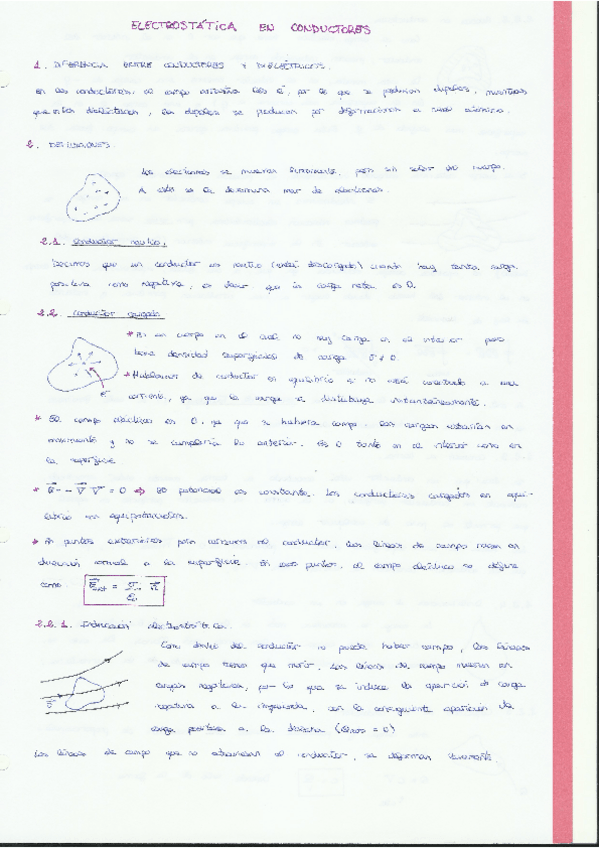 ELECTROSTÁTICA EN CONDUCTORES
1. DIFERENCIA ENTRE CONDUCTORES Y DIELÉCTRICOS.
En los conductores, el campo es por lo que se producen dipolos, mientras
que en los dieléctricos, los dipolos se producen por deformaciones a nivel atómico.
2. DEFINICIONES
Los electrones se mueven libremente, pero sin salir del cuerpo.
A esto se le denomina mar de electrones.
2.1. Conductor neutro.
Decimos que un conductor es neutro (está descargado) cuando hay tanta carga
positiva como negativa, es decir que la carga neta es 0.
2.2. Conductor cargado
* Es un cuerpo en el cual no hay carga en el interior pero
tiene densidad superficial de carga σ ≠ 0.
* Hablamos de conductor en equilibrio si no está conectado a una
corriente, ya que la carga se distribuye instantáneamente.
* El campo eléctrico es 0, ya que si hubiera campo, las cargas estarían en
movimiento y no se cumpliría lo anterior. Es 0 tanto en el interior como en
la superficie
* E = -∇V = 0 ⇒ El potencial es constante. Los conductores cargados en equi-
librio son equipotenciales.
* A puntos exteriores pero cercanos al conductor, las líneas de campo van en
dirección normal a la superficie. En esos puntos, el campo eléctrico se define
como
2.2.1. Inducción electrostática.
Como dentro del conductor no puede haber campo, las líneas
de campo tienen que morir. Las líneas de campo mueren en
cargas negativas, por lo que se induce la aparición de carga
negativa a la izquierda, con la consiguiente aparición de
carga positiva a la derecha
Las líneas de campo que no atraviesan el conductor, se deforman levemente.